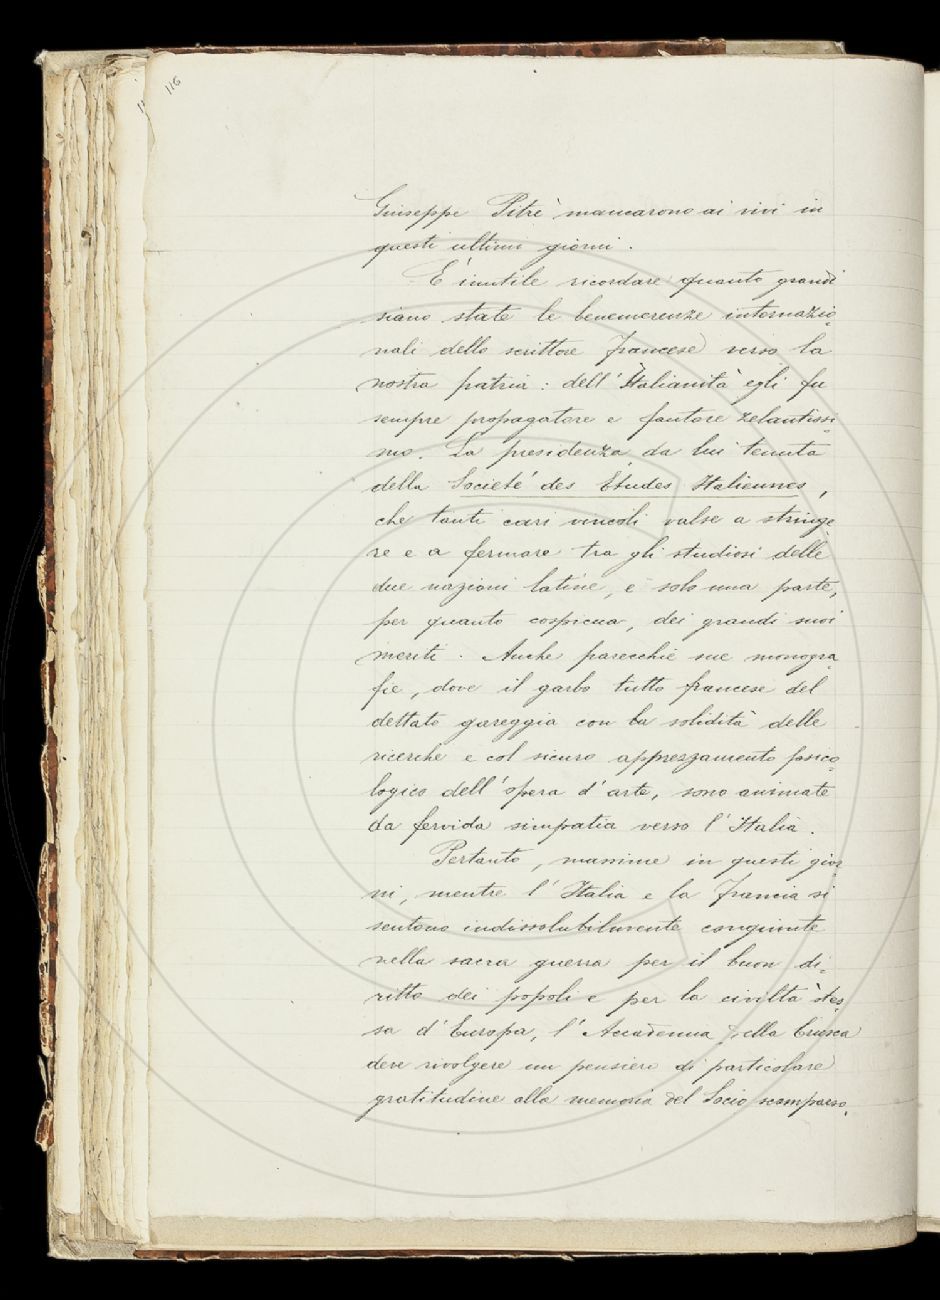 116
Giuseppe Pitrè mancarono ai vivi in
questi ultimi giorni.
È inutile ricordare quanto grandi
siano state le benemerenze internazio-
nali dello scrittore francese verso la
nostra patria: dell'Italianità egli fu
sempre propagatore e fautore zelantissi-
mo. La presidenza da lui tenuta
della Societé des Études Italiennes,
che tanti cari vincoli valse a stringe-
re e a fermare tra gli studiosi delle
due nazioni latine, è solo una parte,
per quanto cospicua, dei grandi suoi
meriti. Anche parecchie sue monogra-
fie, dove il garbo tutto francese del
dettato gareggia con la solidità delle
ricerche e col sicuro apprezzamento psico-
logico dell'opera d'arte, sono animate
da fervida simpatia verso l'Italia.
Pertanto, massime in questi gior-
ni, mentre l'Italia e la Francia si
sentono indissolubilmente congiunte
nella sacra guerra per il buon di-
ritto dei popoli e per la civiltà stes-
sa d'Europa, l'Accademia della Crusca
deve rivolgere un pensiero di particolare
gratitudine alla memoria del Socio scomparso.